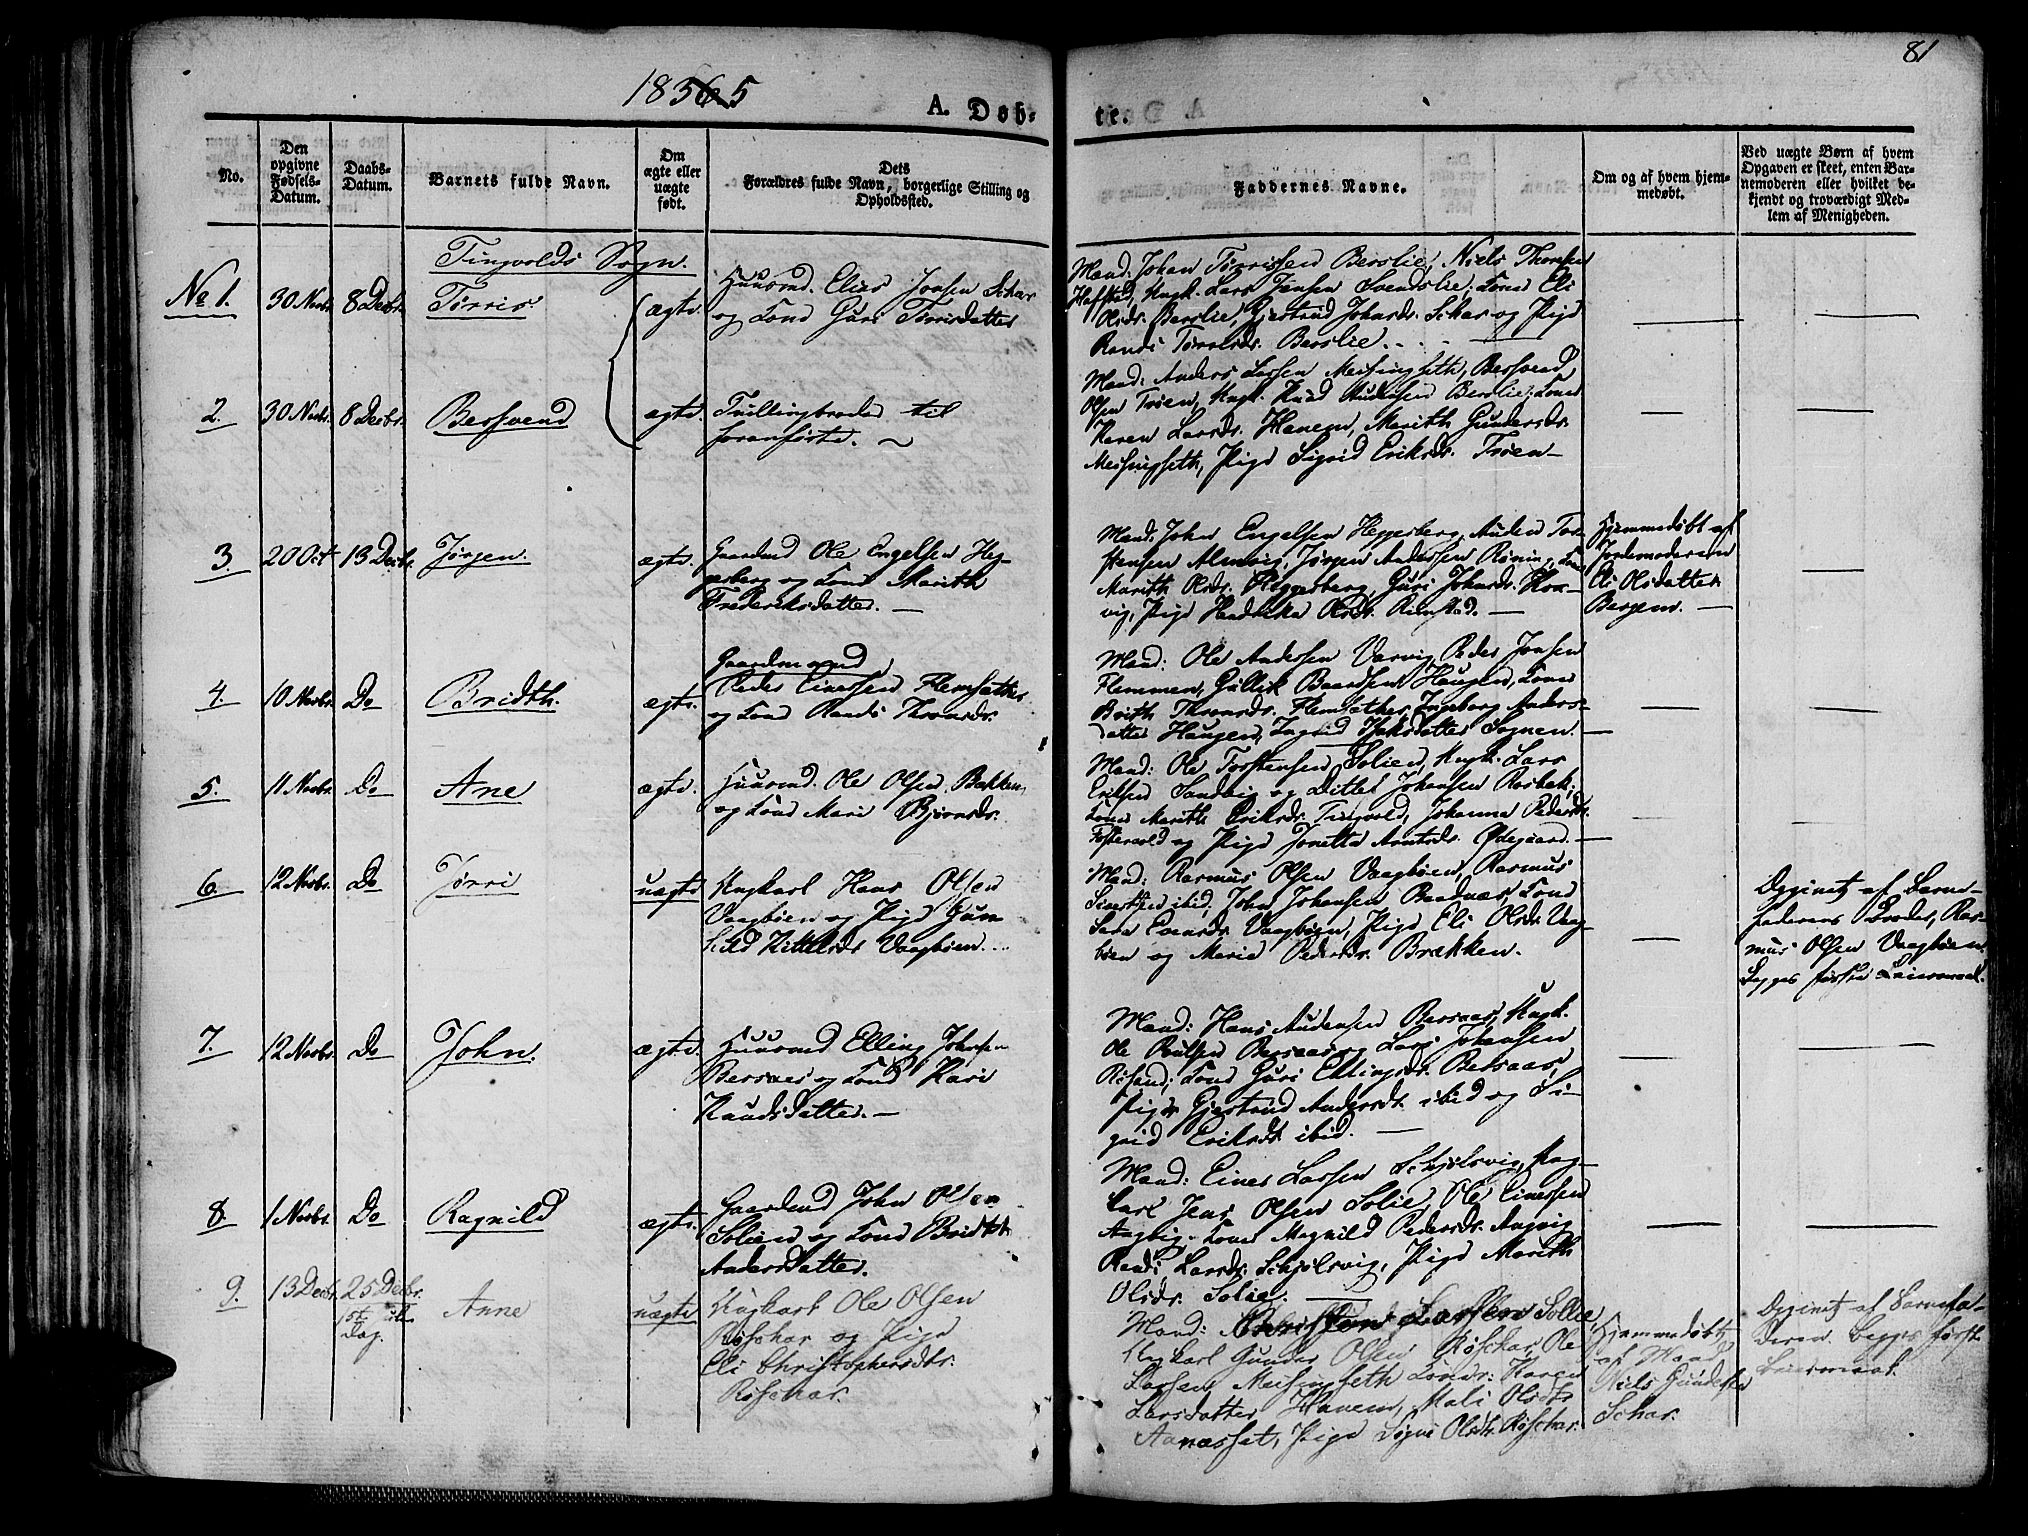 81
18365
A. Døb-
te.
No.
Den opgivne Fødsels-Datum.
Daabs-Datum.
Barnets fulde Navn.
Om ægte eller uægte født.
Dets Forældres fulde Navn, borgerlige Stilling og Opholdssted.
Faddernes Navne.
Om og af hvem hjem-
medøbt.
Ved uægte Børn af hvem
Opgaven er skeet, enten Bar-
nemoderen eller hvilket be-
kjendt og troværdigt Med-
lem af Menigheden.
Tingvolds Sogn.
No 1. 30 Novbr. 8 Decbr. Tørris ægte.
Huusmd. Elias Jonsen Schar
og Kond Guri Tørrisdatter
Mand: Johan Tørrissen Berslie, Niels Thomsen
Hafstad, Ungk. Lars Jensen Svendslie; Kond Eli
Olsdr. Berslie, Gjertrud Johnsdr. Schar og Pige
Randi Berslie.
2. 30 Novbr. 8 Decbr. Bersvend ægte.
Tvillingbroder til
foranførte.
Mand: Anders Larsen Meisingseth, Bersvend
Olsen Trøen, Ungk. Knud Audensen Berslie; Kond
Karen Larsdr. Hanem, Marith Gundersdr.
Meisingseth, Pige Sigrid Eriksdr. Trøen
3. 20 Oct 13 Decbr. Jørgen. ægte.
Gaardmd Ole Engelsen Heg-
gesberg og Kond Marith
Frederiksdatter.
Mand: John Engelsen Heggesberg, Auden Tor-
stensen Almvig, Jørgen Andersen Rønning, Kond
Marith Olsdr. Heggesberg, Guri Johnsdr. Kor-
vig, Pige Hendrikka Olsdr. Rimstad.
Hjemmedøbt af
Jordemoderen
Eli Olsdatter
Bergem.
4. 10 Novbr. Do Bridth. ægte.
Gaardmand
Peder Einersen Flemsæther
og Kond Randi Thronsdr.
Mand: Ole Andersen Vaavig, Peder Jonsen
Flemmen, Gullik Baardsen Haugen, Kond
Brith Thronsdr. Flemsæther, Ingeborg Anders-
datter Haugen, Ingrid Isaksdatter Sognen.
5. 11 Novbr. Do Ane ægte.
Huusmd. Ole Olsen Bakken
og Kond Mari Bjørnsdr.
Mand: Ole Torstensen Solien, Ungk. Lars
Eriksen Sandvig og Ditlef Johansen Rosbak;
Kond Marith Eriksdr. Tingvold, Johanna Pedersdr.
Fostervold og Pige Jonetta Arntsdr. Ødegaard.
6. 12 Novbr. Do Jørri uægte
Ungkarl Hans Olsen
Vaagbøen og Pige Gun-
hild Kittelsdr Vaagbøen.
Mand: Rasmus Olsen Vaagbøen, Rasmus
Sivertsen ibid, John Johansen Baadnæs, Kond
Sara Evensdr. Vaagbøen, Pige Eli Olsdr. Vaag-
bøen og Marie Pedersdr. Brækken.
Opgivet af Barne-
faderens Broder, Ras-
mus Olsen Vaagbøen
Begges første Leiermaal.
7. 12 Novbr. Do John. ægte
Huusmd Elling Johnsen
Bersaas og Kond Kari
Knudsdatter.
Mand: Hans Audensen Bersaas, Ungk.
Ole Poulsen Bersaas og Lars Johansen
Røsand; Kond Guri Ellingsdr. Bersaas,
Piger Gjertrud Andersdr. ibid og Si-
grid Eriksdr. ibid.
8. 1 Novbr. Do Ragnild ægte.
Gaardmd John Olsen
Solien og Kond Bridth
Andersdatter.
Mand: Einer Larsen Schjølsvig, Ung-
karl Jens Olsen Solie, Ole Einersen
Angvig. Kond Magnild Pedersdr. Angvig
Randi Larsdr. Schjølsvig, Pige Marith
Olsdr. Solie.
9. 13 Decbr. 25 Decbr.
1st Jule
Dag. Anne uægte
Ungkarl Ole Olsen
Røschar og Pige
Eli Christophersdtr.
Røschar.
Mand: Christen Larsen Sollie
Ungkarl Gunder Olsen Røschar, Ole
Larsen Meisingseth Kondr: Karen
Larsdatter Hanem, Mali Olsdtr
Aanæsset, Pige Olsdtr. Røschar.
Hjemmedøbt
af Mand
Niels Gundersen
Schar.
Opgivet af Barnefa-
deren. begges første
Leiermaal.